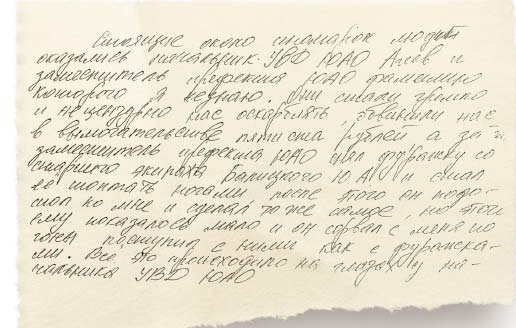 Стоящие около иномарок людьми
оказались начальник УВД ЮАО Агеев и
заместитель префекта ЮАО фамилию
которого я незнаю. Они стали громко
и нецензурно нас оскорблять, обвинили нас
в вымогательстве пятиста рублей а затем
заместитель префекта ЮАО снял фуражку со
старшего экипажа Ю.А. и стал
ее топтать ногами после этого он подо-
шол ко мне и сделал то же самое, но этого
ему показалось мало и он сорвал с меня по
гоны поступил с ними как с фуражка-
ми. Все это происходило на глазах у на-
чальника УВД ЮАО